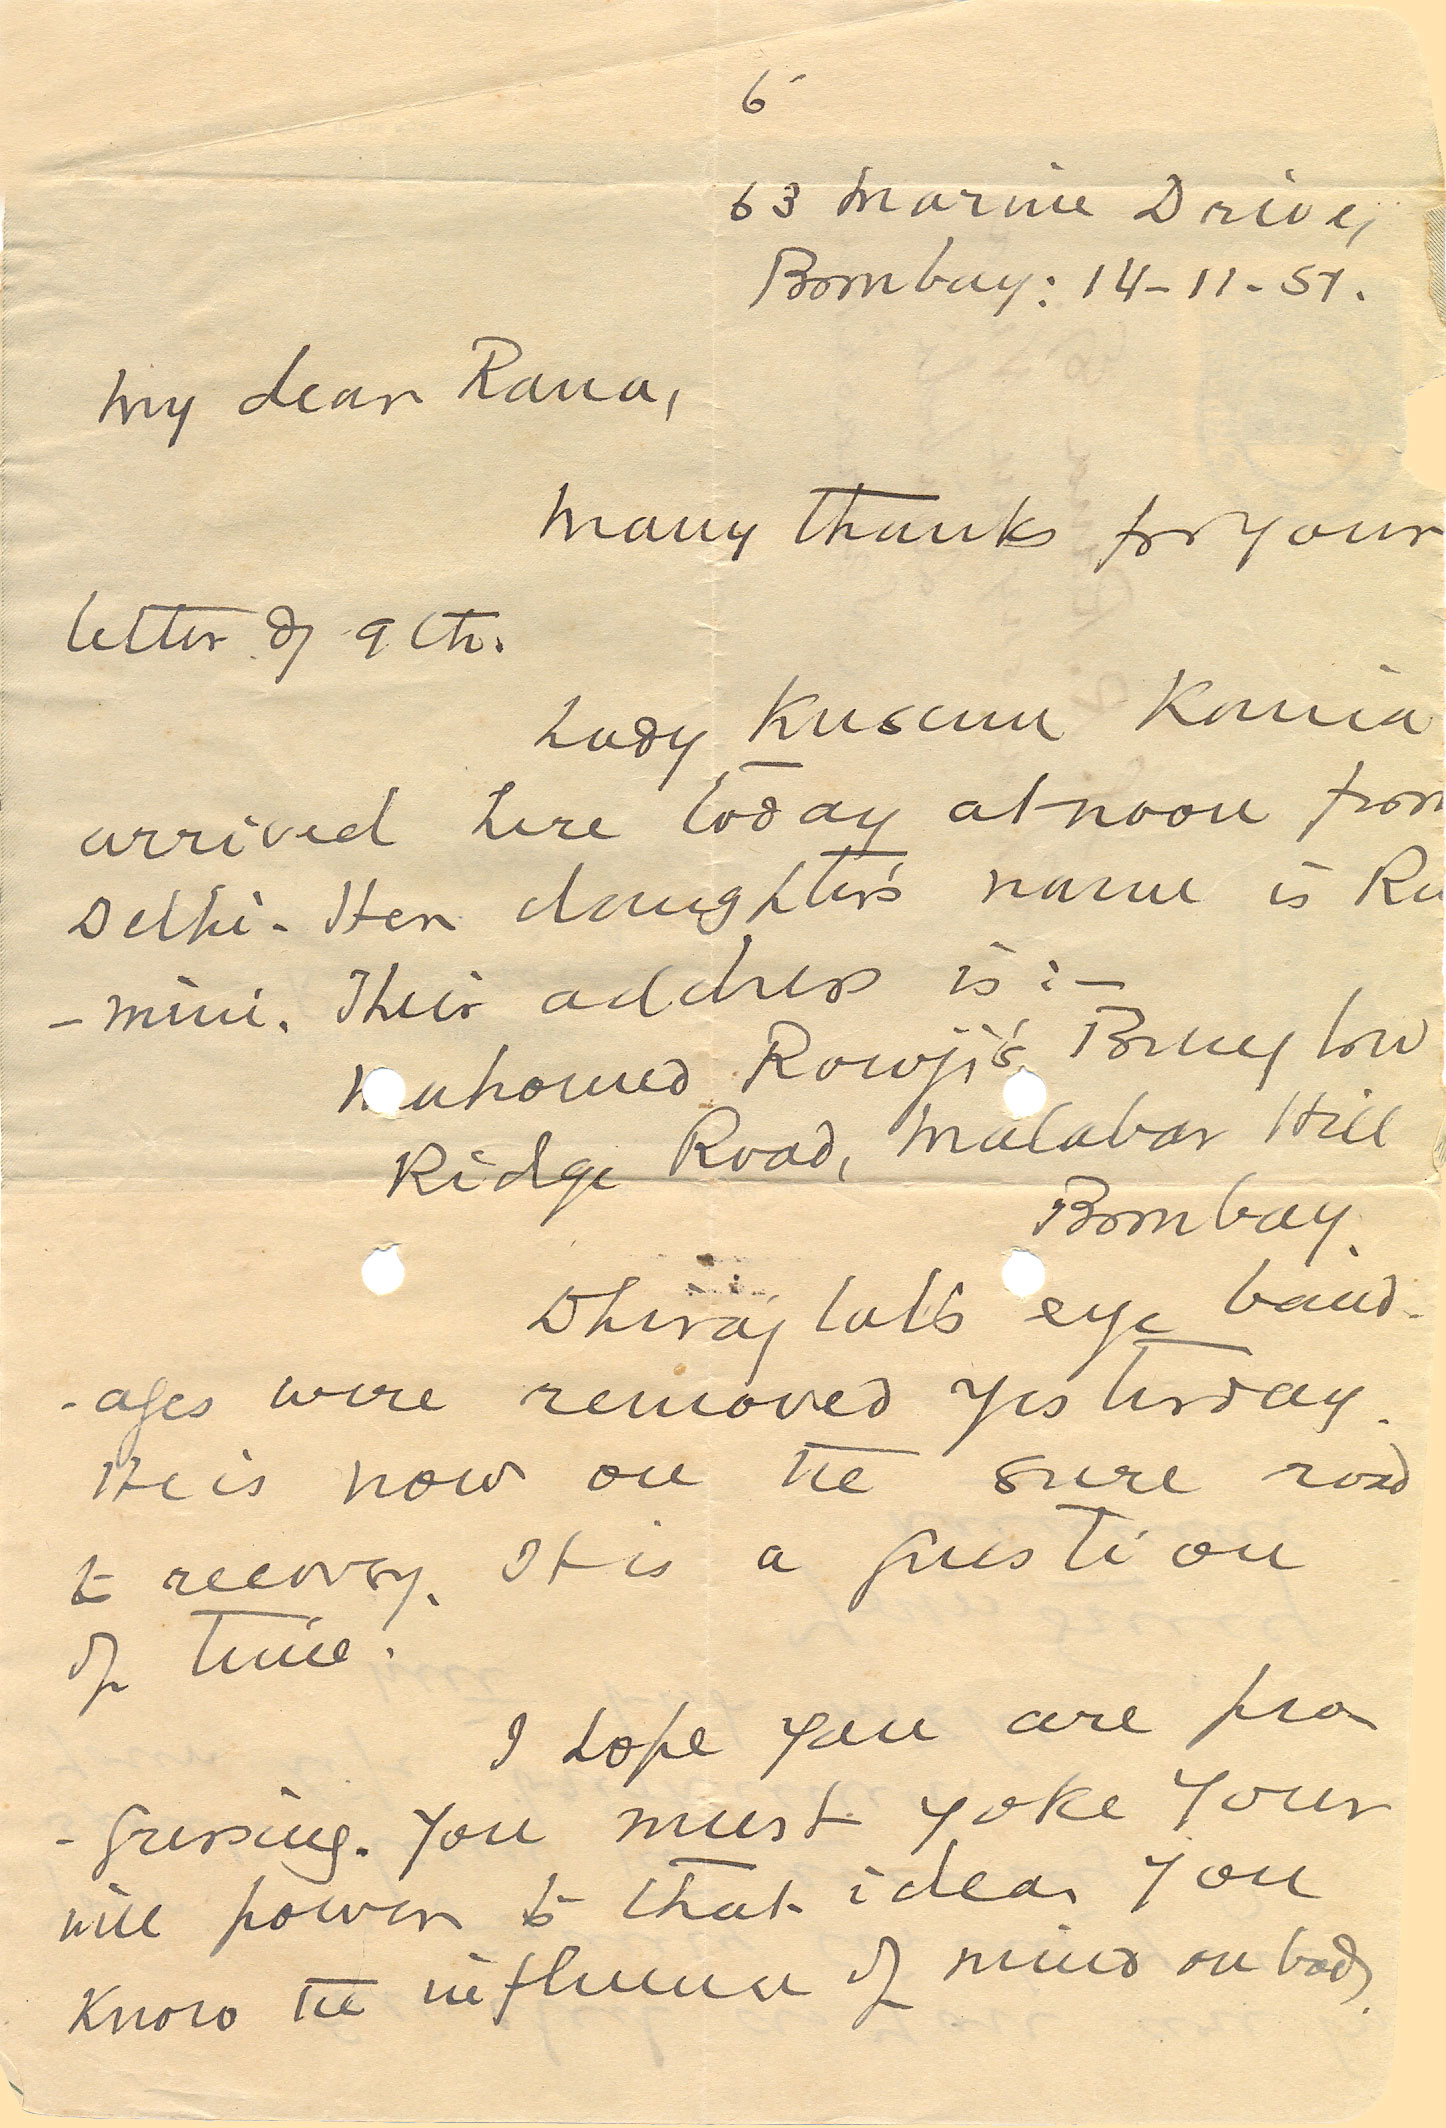 6
63 Marine Drive,
Bombay: 14-11-51.
My dear Rana,
Many thanks for your
letter of 9th.
Lady Kusum Kania
arrived here today at noon from
Delhi. Her daughter's name is Ru
-mini. Their address is :-
Mahomed Rowji's Bunglow
Ridge Road, Malabar Hill
Bombay.
Dhirajlal's eye band-
-ages were removed yesterday.
He is now on the sure road
to recovery. It is a question
of time.
I hope you are pro
-gressing. You must yoke your
will power to that idea. You
know the influence of mind on body.